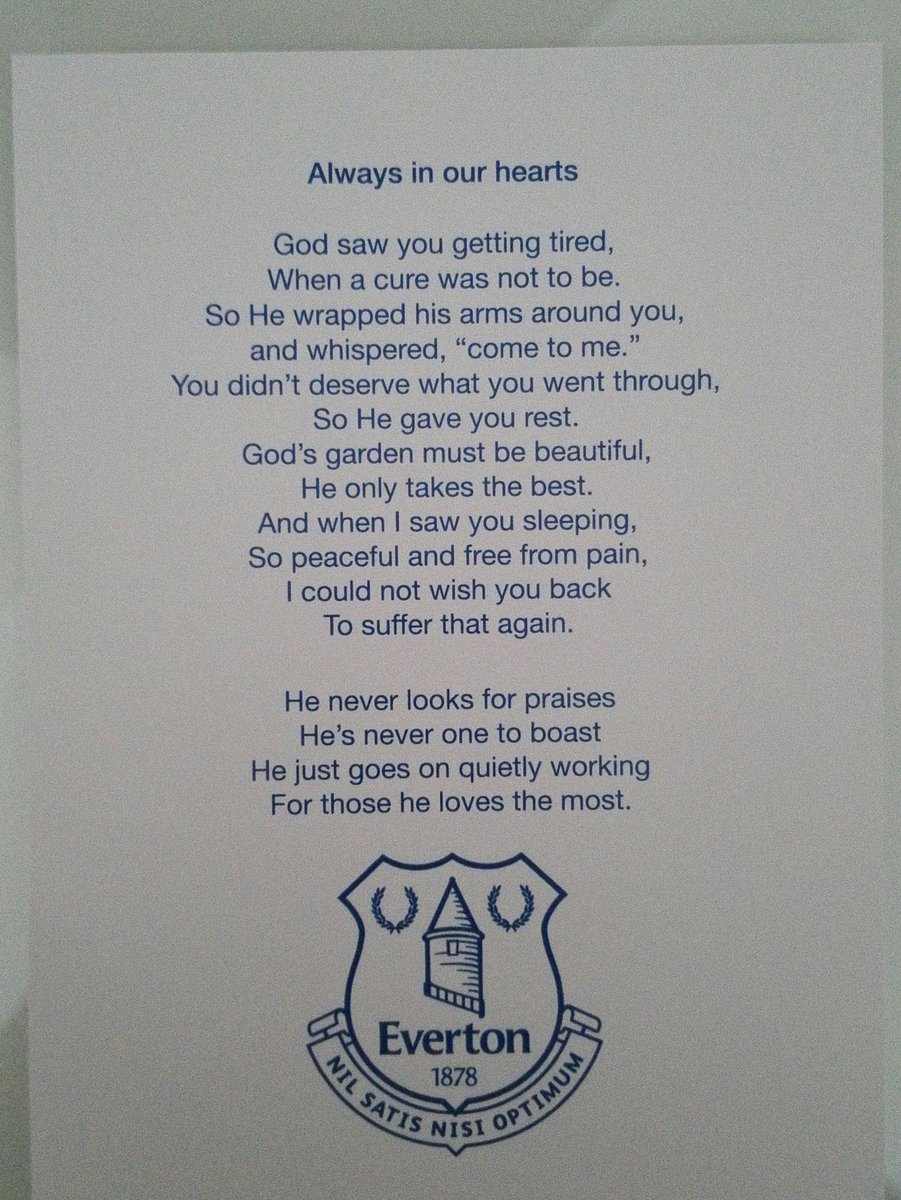 Always in our hearts
God saw you getting tired,
When a cure was not to be.
So He wrapped his arms around you,
and whispered, “come to me.”
You didn’t deserve what you went through,
So He gave you rest.
God’s garden must be beautiful,
He only takes the best.
And when I saw you sleeping,
So peaceful and free from pain,
I could not wish you back
To suffer that again.
He never looks for praises
He’s never one to boast
He just goes on quietly working
For those he loves the most.
Everton
1878
NIL SATIS NISI OPTIMUM